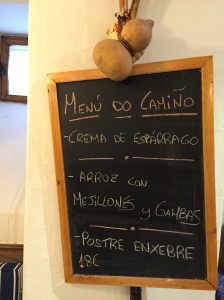 MENÚ DO CAMIÑO
- CREMA DE ESPÁRRAGO
- ARROZ CON
MEJILLONES y GAMBAS
- POSTRE ENXEBRE
18€